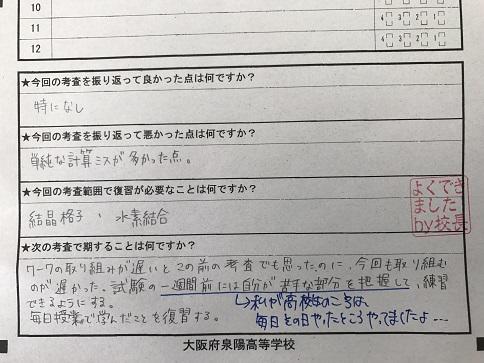 10
11
12
4 3 2 1
4 3 2 1
★今回の考査を振り返って良かった点は何ですか？
特になし
★今回の考査を振り返って悪かった点は何ですか？
単純な計算ミスが多かった点。
★今回の考査範囲で復習が必要なことは何ですか？
結晶格子、水素結合
よくでき
ました
by校長
★次の考査で期することは何ですか？
ワークの取り組みが遅いとこの前の考査でも思ったのに、今回も取り組む
のが遅かった。試験の一週間前には自分が苦手な部分を把握して、練習
できるようにする。
↳私が高校生のころは、
毎日授業で学んだことを復習する。
毎日その日やったところやってましたよ…
大阪府泉陽高等学校